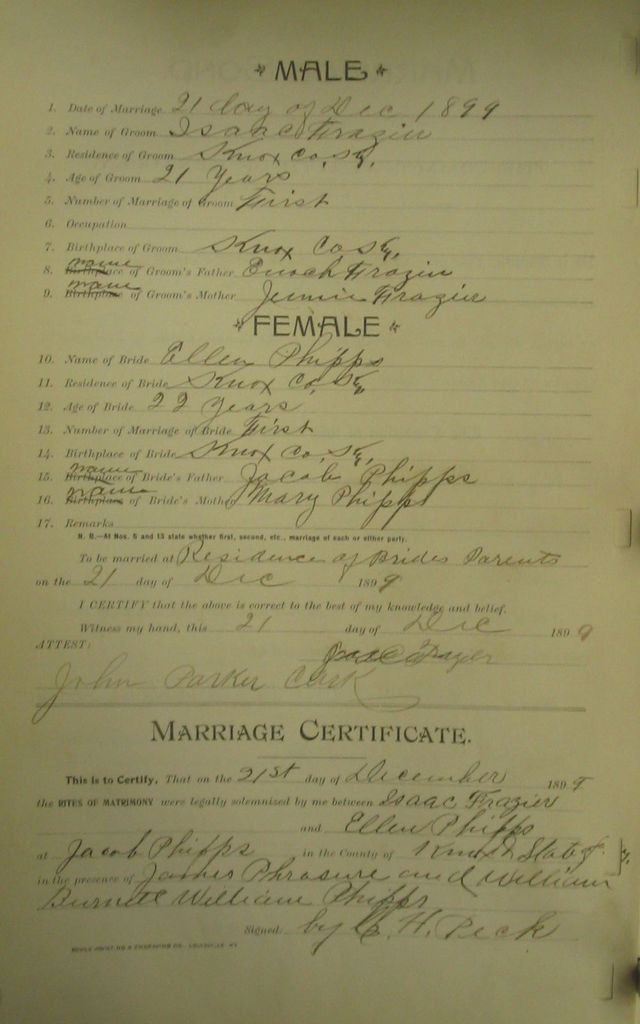 MALE
1. Date of Marriage 21 day of Dec 1899
2. Name of Groom Isaac Frazier
3. Residence of Groom Knox Co, Ky,
4. Age of Groom 21 Years
5. Number of Marriage of Groom First
6. Occupation
7. Birthplace of Groom Knox Co Ky,
8. Birthplace name of Groom's Father Enoch Frazier
9. Birthplace name of Groom's Mother Jennie Frazier
FEMALE
10. Name of Bride Ellen Phipps
11. Residence of Bride Knox Co, Ky,
12. Age of Bride 22 Years
13. Number of Marriage of Bride First
14. Birthplace of Bride Knox Co, Ky,
15. Birthplace name of Bride's Father Jacob Phipps
16. Birthplace name of Bride's Mother Mary Phipps
17. Remarks
N. B.—At Nos. 5 and 13 state whether first, second, etc., marriage of each or either party.
To be married at Residence of Brides Parents
on the 21 day of Dec 1899
I CERTIFY that the above is correct to the best of my knowledge and belief.
Witness my hand, this 21 day of Dec 1899
ATTEST:
Isaac Frazier
John Parker Clerk
MARRIAGE CERTIFICATE.
This is to Certify, That on the 21st day of December 1899
the RITES OF MATRIMONY were legally solemnized by me between Isaac Frazier
and Ellen Phipps
at Jacob Phipps in the County of Knox & State of Ky.
in the presence of James Phrasure and William
Burnett William Phipps
Signed: by H. Peck